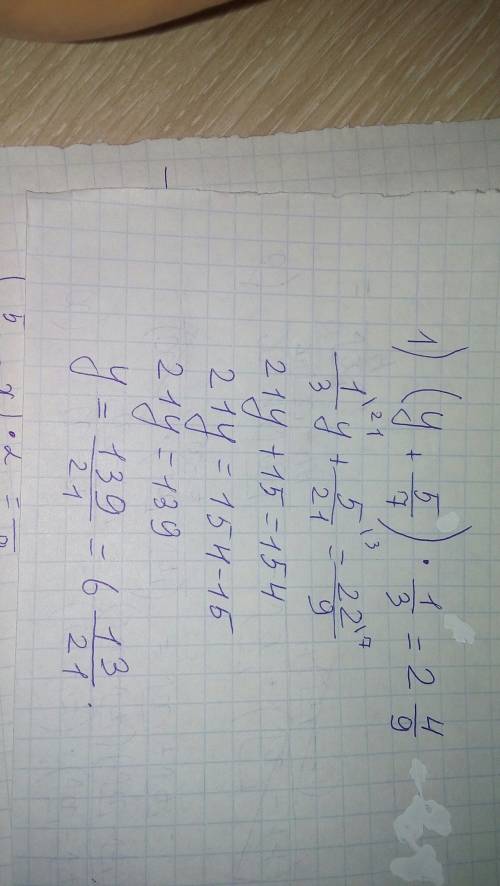 1) (y + 5/7) · 1/3 = 2 4/9
1/3\21 y + 5/21\3 = 22/9\7
21y + 15 = 154
21y = 154-15
21y = 139
y = 139/21 = 6 13/21.